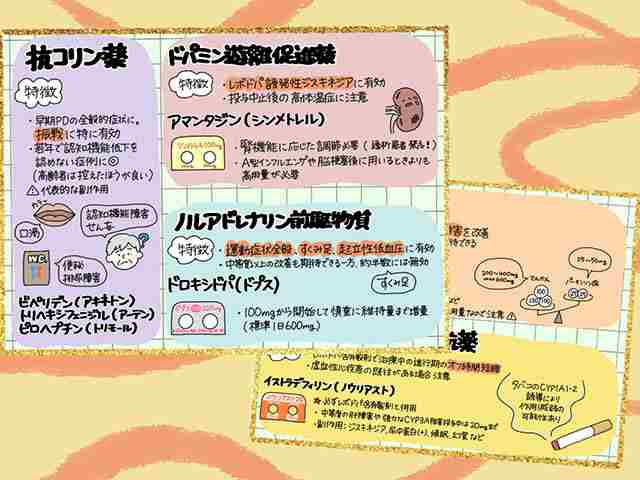 抗コリン薬
特徴
・早期PDの全般的症状に。
振戦に特に有効
・若年で認知機能低下を
認めない症例に◎
(高齢者は控えたほうが良い)
⚠代表的な副作用
口渇
認知機能障害
せん妄
W.C.
便秘
排尿障害
ビペリデン(アキネトン)
トリヘキシフェニジル(アーテン)
ピロヘプチン(トリモール)
ドパミン遊離促進薬
特徴
・レボドパ誘発性ジスキネジアに有効
・投与中止後の高体温症に注意
アマンタジン(シンメトレル)
・腎機能に応じた調節必要(透析患者禁忌!)
・A型インフルエンザや脳梗塞後に用いるときよりも
高用量が必要
ノルアドレナリン前駆物質
特徴
・運動症状全般、すくみ足、起立性低血圧に有効
・中等度以上の改善も期待できる一方、約半数には無効
ドロキシドパ(ドプス)
すくみ足
・100mgから開始して慎重に維持量まで増量
(標準1日600mg)
害を改善
待できる
25~50mg
てんかん
パーキンソン病
100
100
25
なので注意
薬
・レボドパ含有製剤で治療中の進行期のオフ時間短縮
・虚血性心疾患の既往がある場合注意
イストラデフィリン(ノウリアスト)
・必ずレボドパ含有製剤と併用
・中等度の肝障害や強力なCYP3A阻害投与中は20mgまで
・副作用:ジスキネジア、尿中蛋白(+)、傾眠、幻覚など
タバコのCYP1A1・2
誘導により
作用減弱の
可能性あり